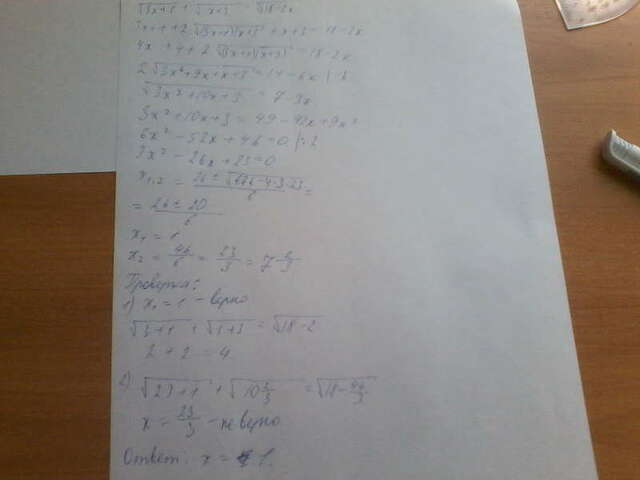 √(3x+1) + √(x+3) = √(18-2x)
3x+1+2√((3x+1)(x+3)) + x+3 = 18-2x
4x+4+2√((3x+1)(x+3)) = 18-2x
2√(3x²+9x+x+3) = 14-6x |:2
√(3x²+10x+3) = 7-3x
3x²+10x+3 = 49-42x+9x²
6x²-52x+46=0 |:2
3x²-26x+23=0
x₁,₂ = (26±√(676-4·3·23))/6 =
= (26±20)/6
x₁ = 1
x₂ = 46/6 = 23/3 = 7 2/3
Проверка:
1) x₁=1 - верно
√(3+1) + √(1+3) = √(18-2)
2+2=4
2) √(23+1) + √(10 2/3) = √(18-46/3)
x = 23/3 - не верно
Ответ: x = 1.